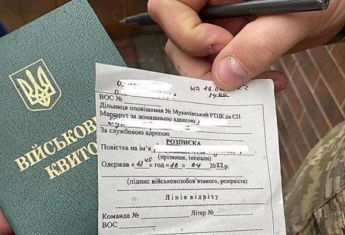 ВІЙСЬКОВ
КВИТО
на 18.04.22
14:00
ВОС №
Дільниця оповіщення № Мукачівський РТЦК та СП
Маршрут за домашньою адресою
За службовою адресою
РОЗПИСКА
Повістка на ім'я
(прізвище, ініціали)
Одержав «12 45» год «16» 04 2022 р.
(підпис військовозобов'язаного, резервіста)
Лінія відрізу
Команда № Літер №
ВОС